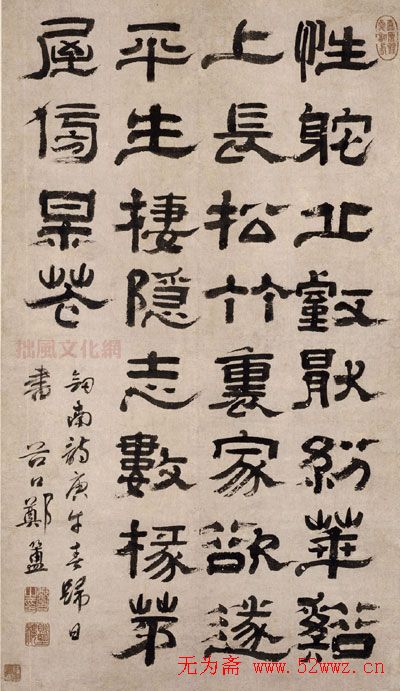 性躭丘壑厭紛華谿
上長松竹裏家欲遂
平生棲隱志數椽茅
屋傍某花
劍南詩庚午春歸日
書 谷口鄭簠
拙風文化網
无为斋 www.52wwz.cn